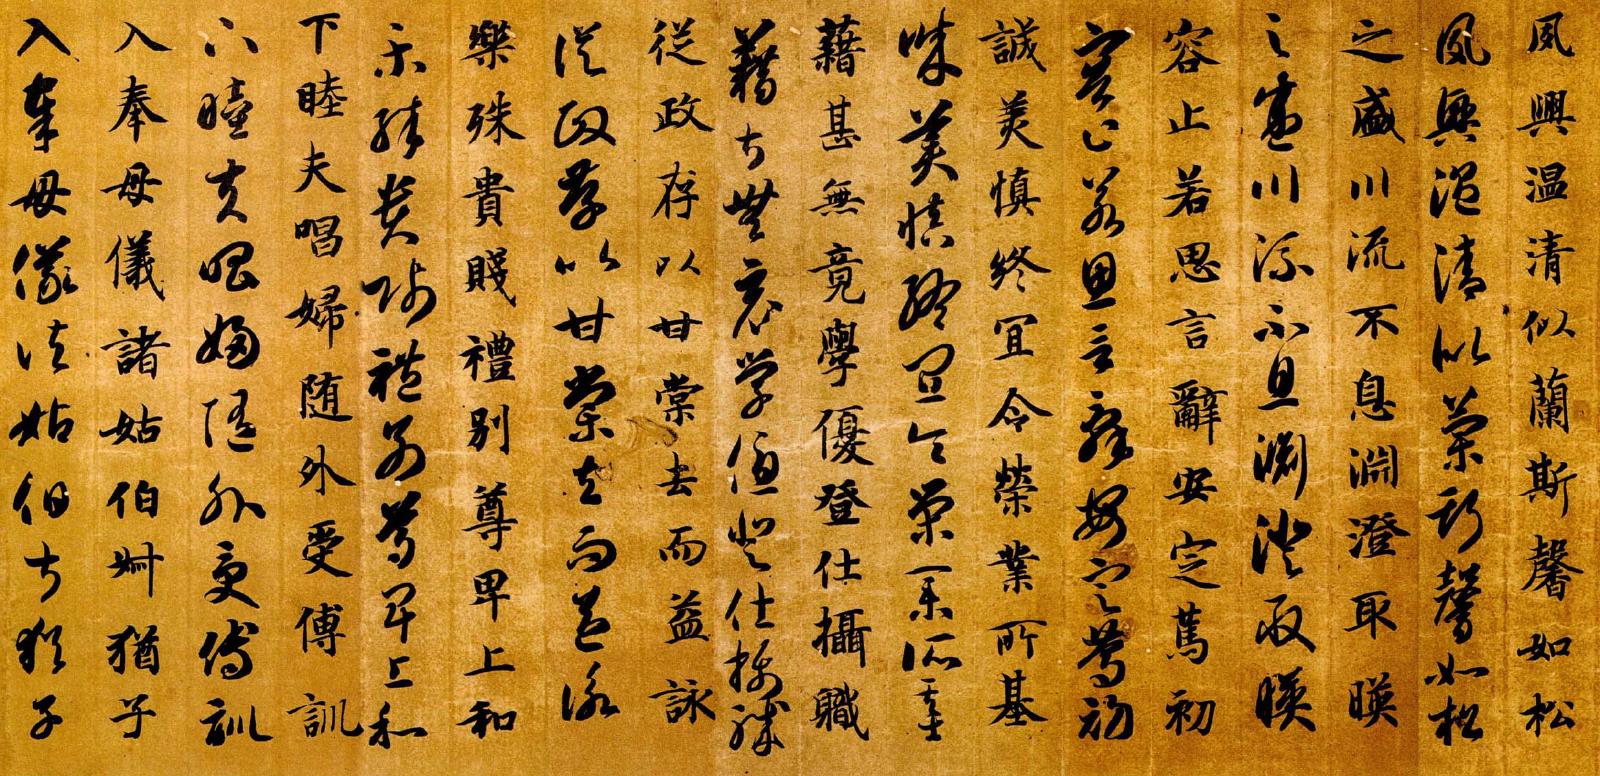 夙興温清似蘭斯馨如松
夙興温清似蘭斯馨如松
之盛川流不息淵澄取暎
之盛川流不息淵澄取暎
容止若思言辭安定篤初
容止若思言辭安定篤初
誠美慎終宜令榮業所基
誠美慎終宜令榮業所基
藉甚無竟學優登仕攝職
藉甚無竟學優登仕攝職
從政存以甘棠去而益詠
從政存以甘棠去而益詠
樂殊貴賤禮別尊卑上和
樂殊貴賤禮別尊卑上和
下睦夫唱婦随外受傅訓
下睦夫唱婦随外受傅訓
入奉母儀諸姑伯叔猶子
入奉母儀諸姑伯叔猶子